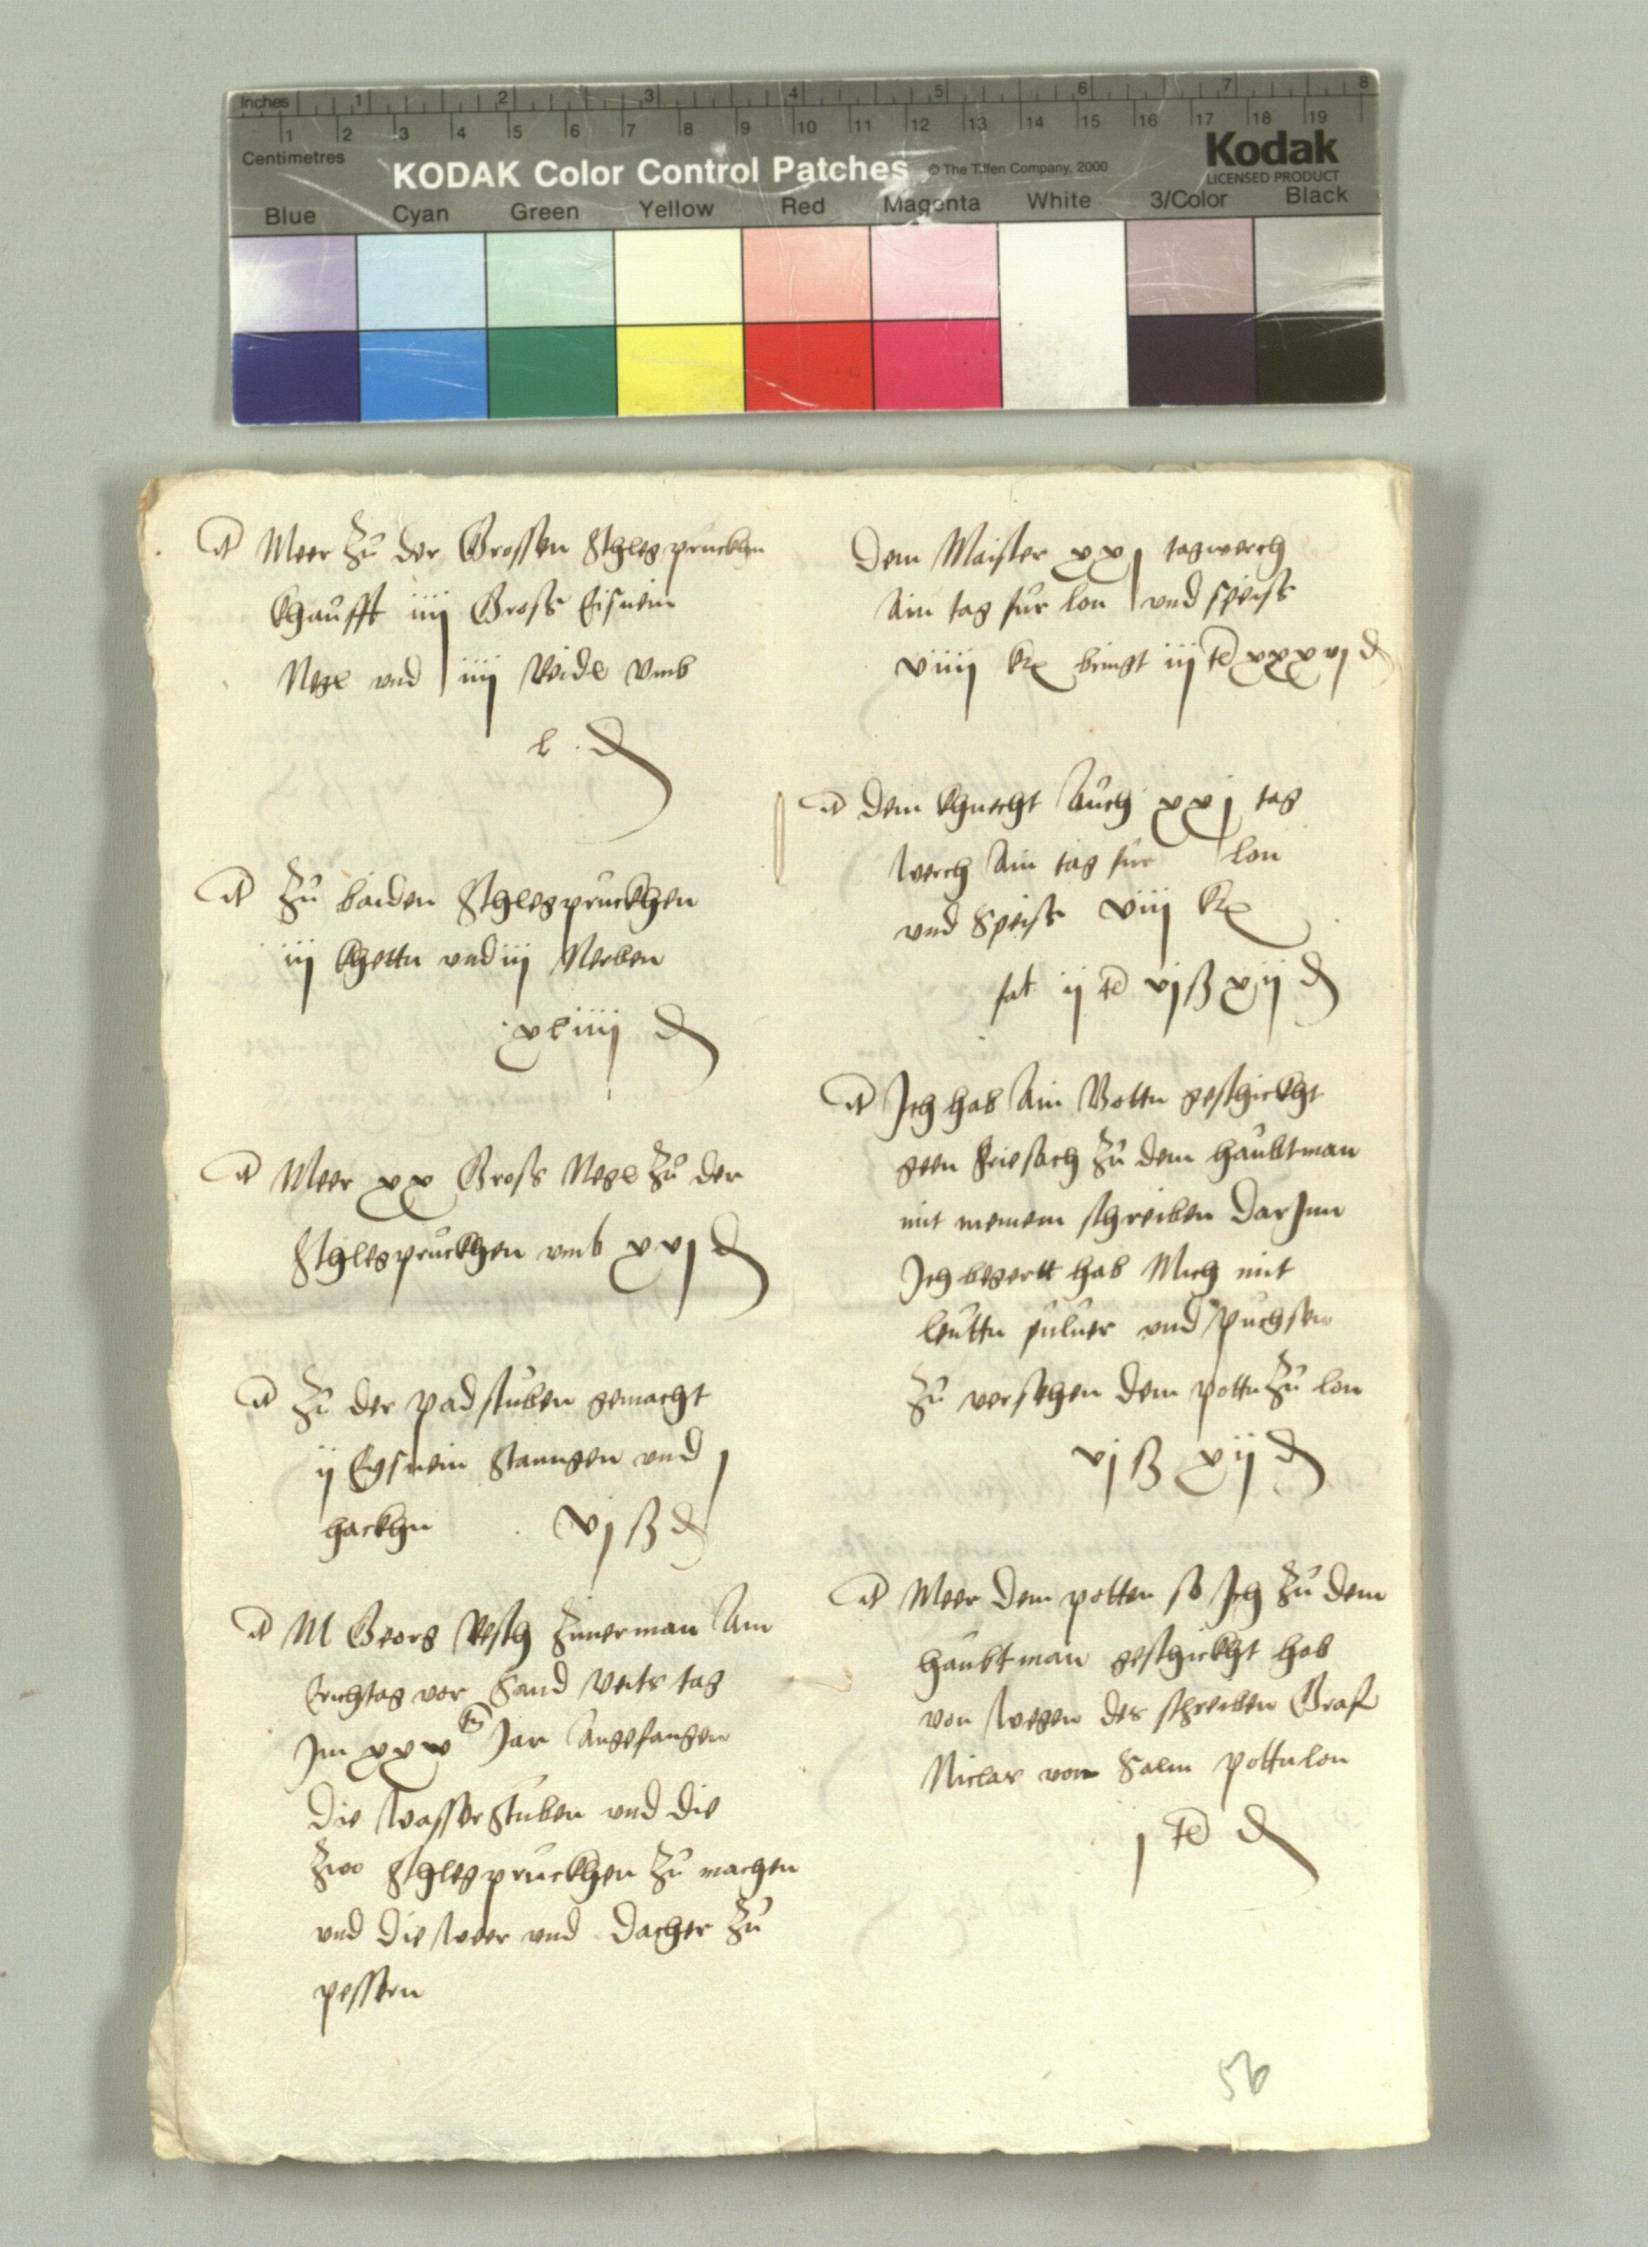 Inches 1 2 3 4 5 6 7 8
1 2 3 4 5 6 7 8 9 10 11 12 13 14 15 16 17 18 19
Centimetres
KODAK Color Control Patches © The Tiffen Company, 2000
Kodak
LICENSED PRODUCT
Blue Cyan Green Yellow Red Magenta White 3/Color Black
It Meer zu der Grossen Schlegpruckhen
khaufft iiij Gross Eisnein
Negl vnd iiij Reidl vmb
l d
It Zu baiden Schlegpruckhen
iij khettn vnd iij Nerben
xliiij d
It Meer xx Gross Negl zu der
Schlegpruckhen vmb xvj d
It Zu der padstuben gemacht
ij Eysnein Stanngen vnd j
hackhn vj ß d
It M Georg Resch Zimerman Am
Erichtag vor Sand Veits tag
Im xxv tn Jar Angefangen
die Wasserstuben vnd die
zwo Schlegpruckhen zu machen
vnd die Weer vnd Dacher zu
pessern
Dem Maister xxj tagwerch
Ain tag fur lon vnd speiss
viiij kr bringt iij tl xxxvj d
It dem khnecht Auch xxj tag
werch Ain tag fur lon
vnd Speiss viij kr
fat ij tl vj ß xij d
It Ich hab Ain Bottn geschickht
geen Friesach zu dem haubtman
mit meinem schreiben DarInn
Ich begertt hab Mich mit
leuttn puluer vnd puchsen
zu versehen dem pottn zu lon
vj ß xij d
It Meer dem potten so Ich zu dem
haubtman geschickht hab
von wegen des schreiben Graf
Niclas von Salm pottnlon
j tl d
56